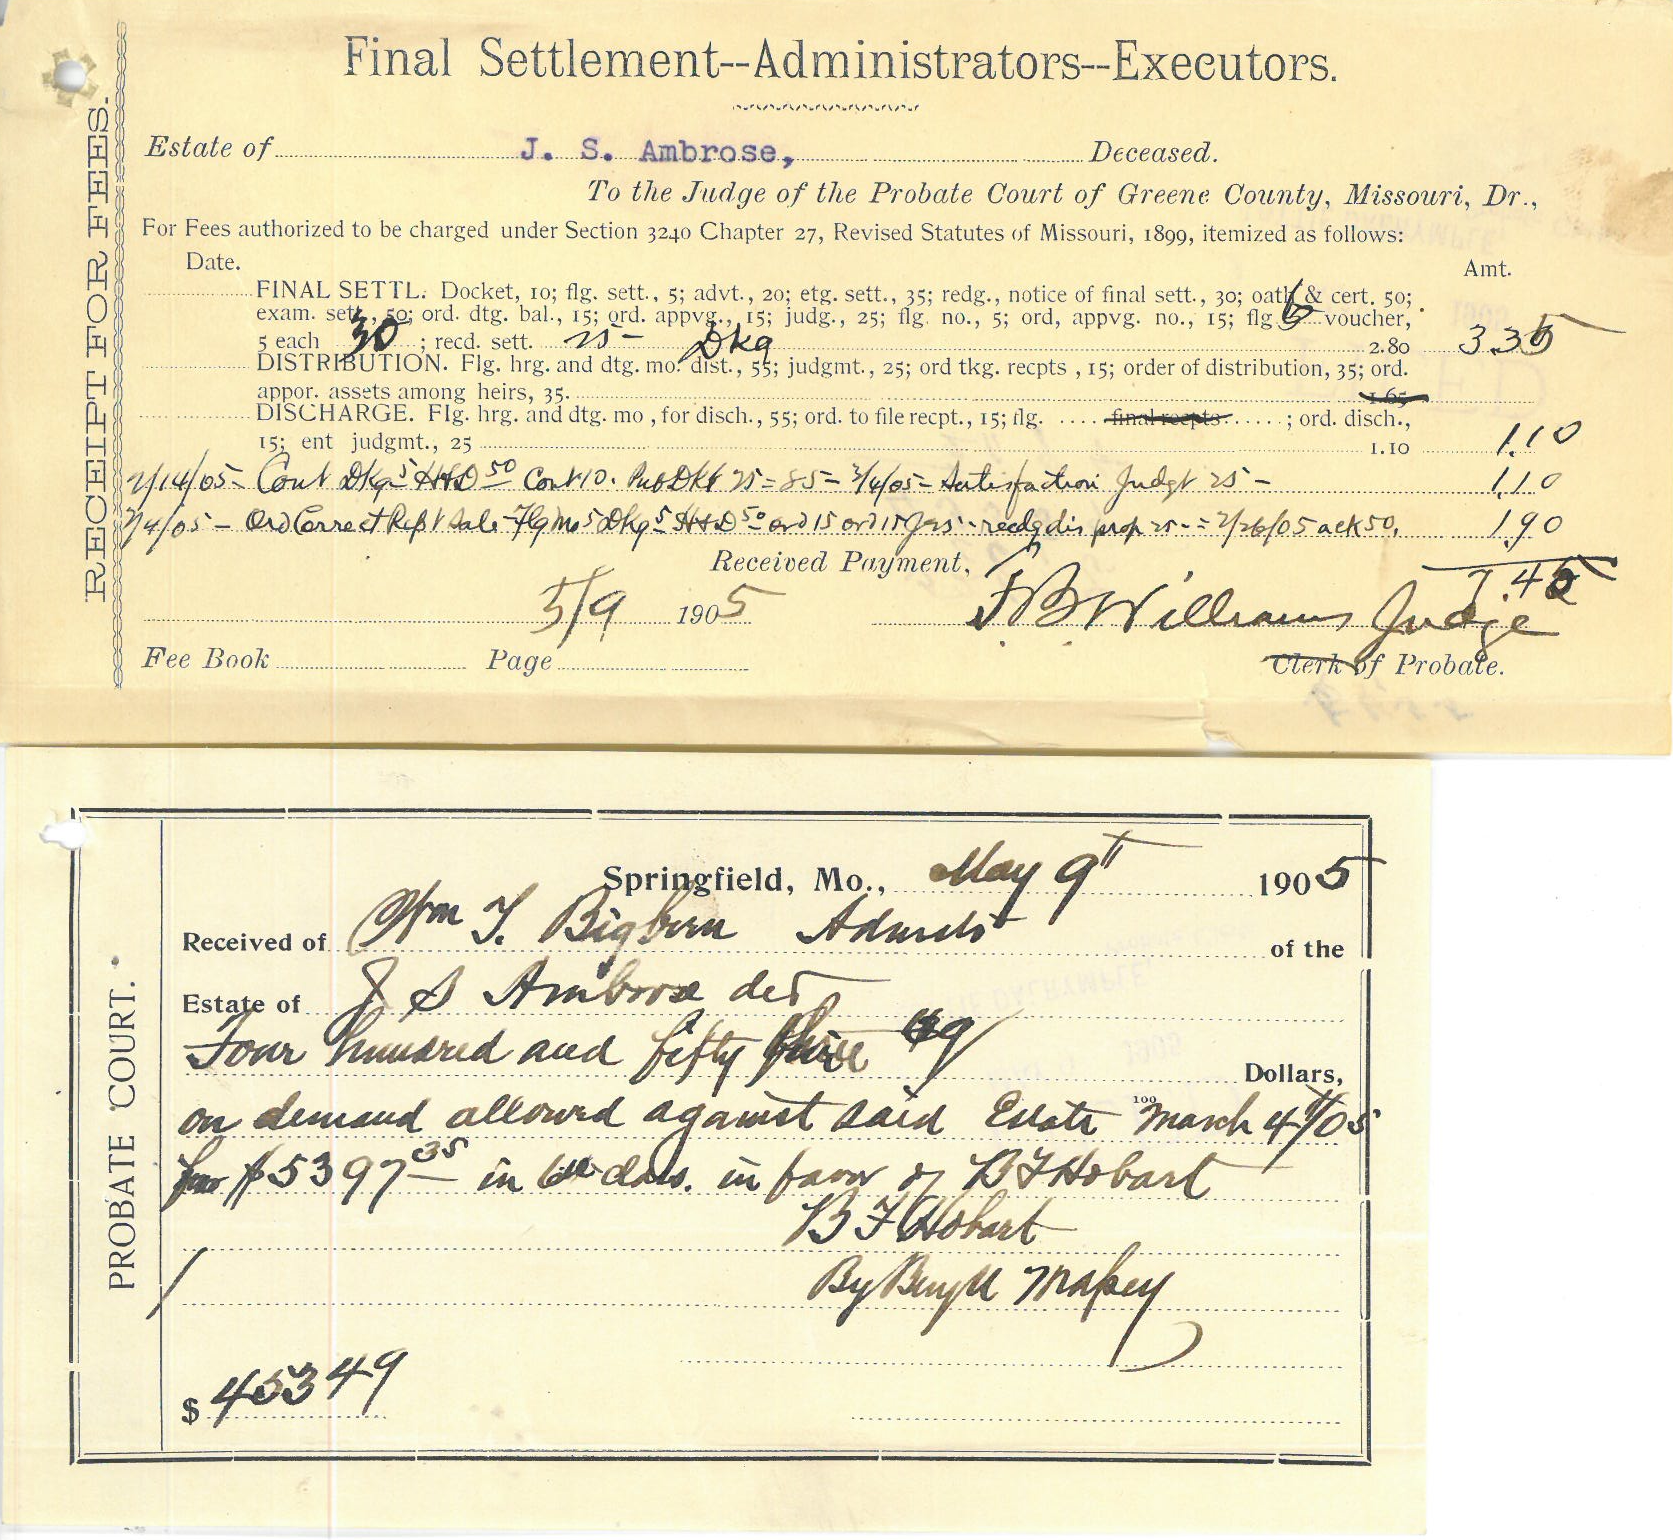 RECEIPT FOR FEES.
Final Settlement--Administrators--Executors.
Estate of J. S. Ambrose, Deceased.
To the Judge of the Probate Court of Greene County, Missouri, Dr.,
For Fees authorized to be charged under Section 3240 Chapter 27, Revised Statutes of Missouri, 1899, itemized as follows:
Date. Amt.
FINAL SETTL. Docket, 10; flg. sett., 5; advt., 20; etg. sett., 35; redg., notice of final sett., 30; oath & cert. 50;
exam. sett., 50; ord. dtg. bal., 15; ord. appvg., 15; judg., 25; flg. no., 5; ord, appvg. no., 15; flg 6 voucher,
5 each 30 ; recd. sett. 25- Dkg 2.80 3.35
DISTRIBUTION. Flg. hrg. and dtg. mo. dist., 55; judgmt., 25; ord tkg. recpts , 15; order of distribution, 35; ord.
appor. assets among heirs, 35. 1.65
DISCHARGE. Flg. hrg. and dtg. mo , for disch., 55; ord. to file recpt., 15; flg. .... final recpts ......; ord. disch.,
15; ent judgmt., 25 1.10 1.10
2/14/05- Cont Dkg 5 H&D 50 Cont 10. Pub Dkt 25 = 85 - 3/4/05- Satisfaction Judgt 25 - 1.10
3/4/05 - Ord Correct Rept Sale - Flg Mo 5 Dkg 5 H&D 50 ord 15 ord 15 J 25 - recdg dis prop 25 - = 2/26/05 ack 50. 1.90
Received Payment, 7.45
5/9 1905 F B Williams Judge
Fee Book Page Clerk of Probate.
PROBATE COURT.
Springfield, Mo., May 9th 1905
Received of Wm T. Bigbern Admst of the
Estate of J S Ambrose decd
Four hundred and fifty three 49 Dollars,
100
on demand allowed against said Estate March 4th/05
for $5397 35 in 6th class. in favor of B F Hobart
B F Hobart
By Benj U Massey
$ 453 49